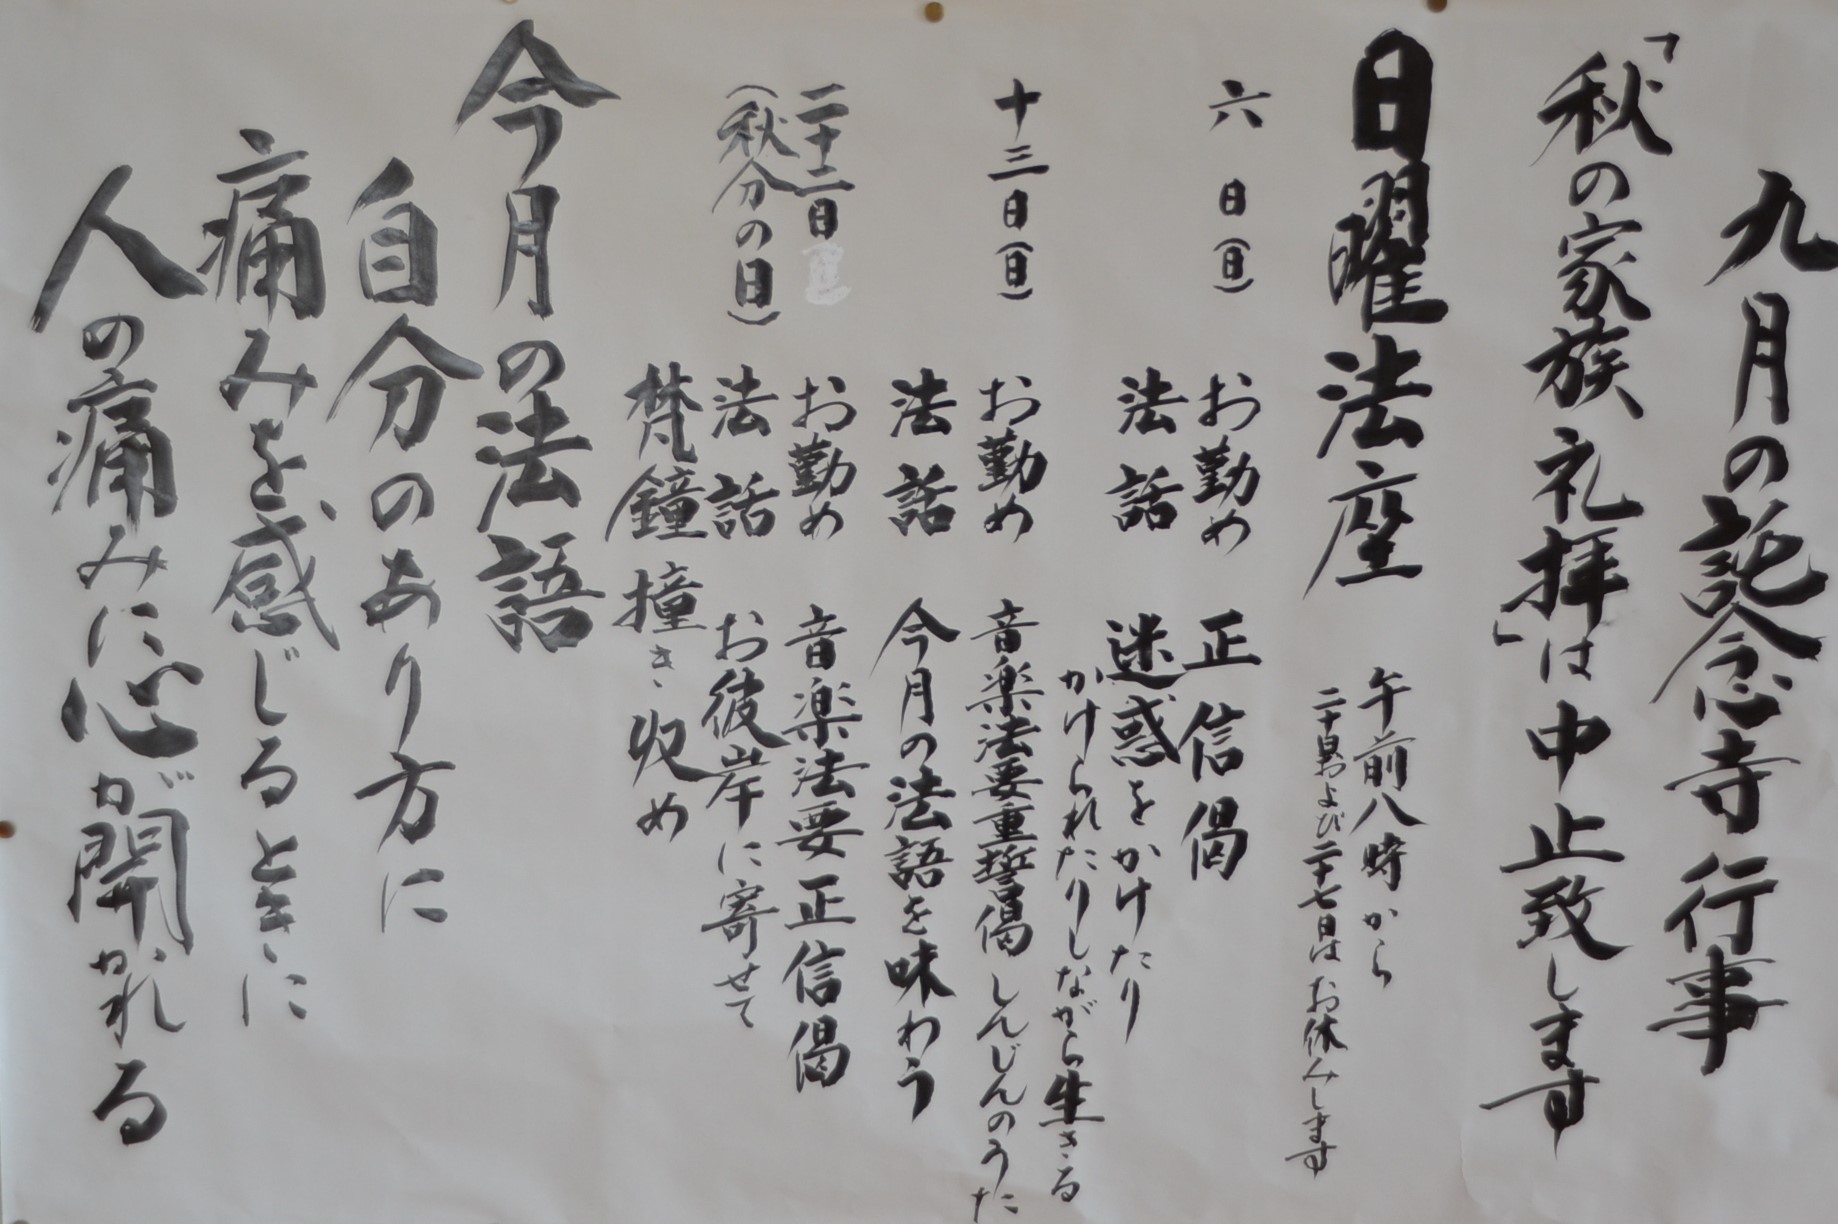 九月の託念寺行事
「秋の家族礼拝」は中止致します
日曜法座
午前八時から
二十日および二十七日はお休みします
六日(日)
お勤め 正信偈
法話 迷惑をかけたり
かけられたりしながら生きる
十三日(日)
お勤め 音楽法要重誓偈 しんじんのうた
法話 今月の法語を味わう
二十二日
(秋分の日)
お勤め 音楽法要正信偈
法話 お彼岸に寄せて
梵鐘撞き収め
今月の法語
自分のあり方に
痛みを感じるときに
人の痛みに心が開かれる